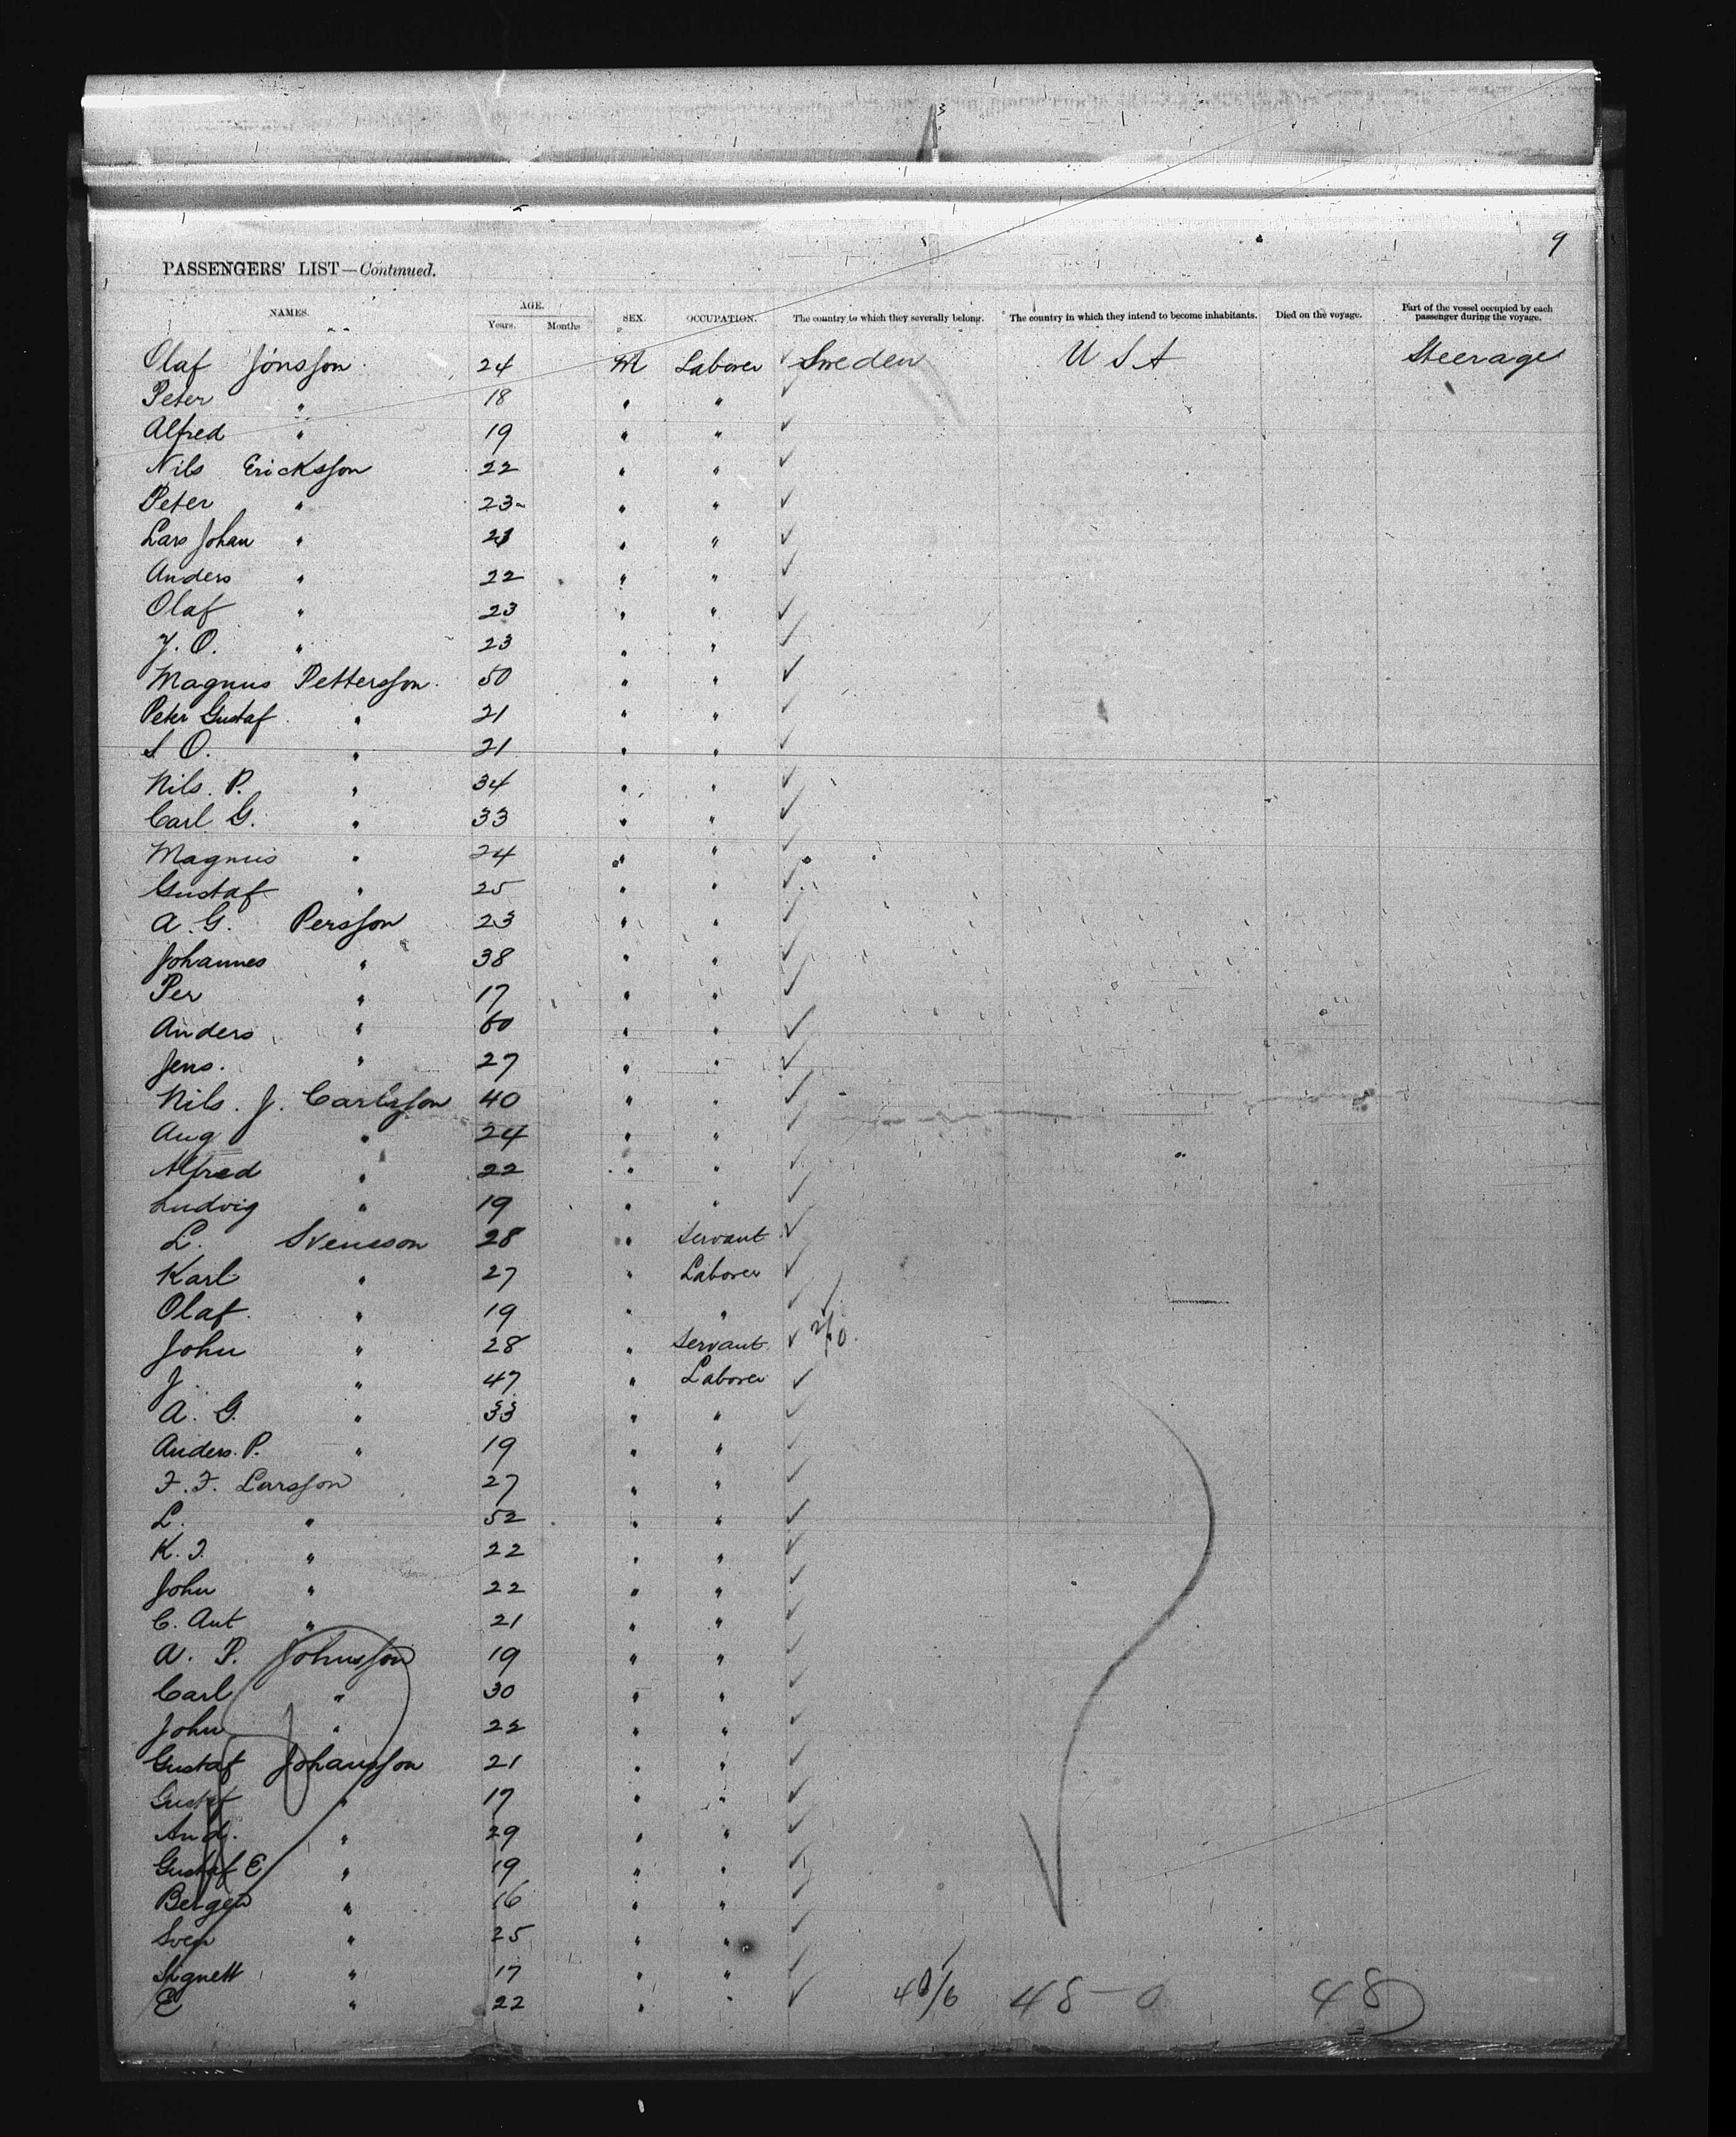 9
PASSENGERS' LIST—Continued.
NAMES. AGE. SEX. OCCUPATION. The country to which they severally belong. The country in which they intend to become inhabitants. Died on the voyage. Part of the vessel occupied by each passenger during the voyage.
Years. Months
Olaf Jönsson 24 M Laborer ✓ Sweden U S A Steerage
Peter " 18 " " ✓
Alfred " 19 " " ✓
Nils Ericksson 22 " " ✓
Peter " 23 " " ✓
Lars Johan " 21 " " ✓
Anders " 22 " " ✓
Olaf " 23 " " ✓
J. O. " 23 " " ✓
Magnus Pettersson 50 " " ✓
Peter Gustaf " 21 " " ✓
S O. " 21 " " ✓
Nils. P. " 34 " " ✓
Carl G. " 33 " " ✓
Magnus " 24 " " ✓
Gustaf " 25 " " ✓
A. G. Persson 23 " " ✓
Johannes " 38 " " ✓
Per " 17 " " ✓
Anders " 60 " " ✓
Jens. " 27 " " ✓
Nils. J. Carlsson 40 " " ✓
Aug " 24 " " ✓
Alfred " 22 " " ✓
Ludvig " 19 " " ✓
L. Svensson 28 " Servant ✓
Karl " 27 " Laborer ✓
Olaf " 19 " " ✓
John " 28 " Servant ✓
J. " 47 " Laborer ✓
A. G. " 33 " " ✓
Anders. P. " 19 " " ✓
F. F. Larsson 27 " " ✓
L. " 52 " " ✓
K. J. " 22 " " ✓
John " 22 " " ✓
C. Ant " 21 " " ✓
A. P. Johnsson 19 " " ✓
Carl " 30 " " ✓
John " 22 " " ✓
Gustaf Johansson 21 " " ✓
Gustaf " 17 " " ✓
And. " 29 " " ✓
Gustaf E " 19 " " ✓
Bergen " 16 " " ✓
Sven " 25 " " ✓
Signett " 17 " " ✓
E " 22 " " ✓ 48-0 48